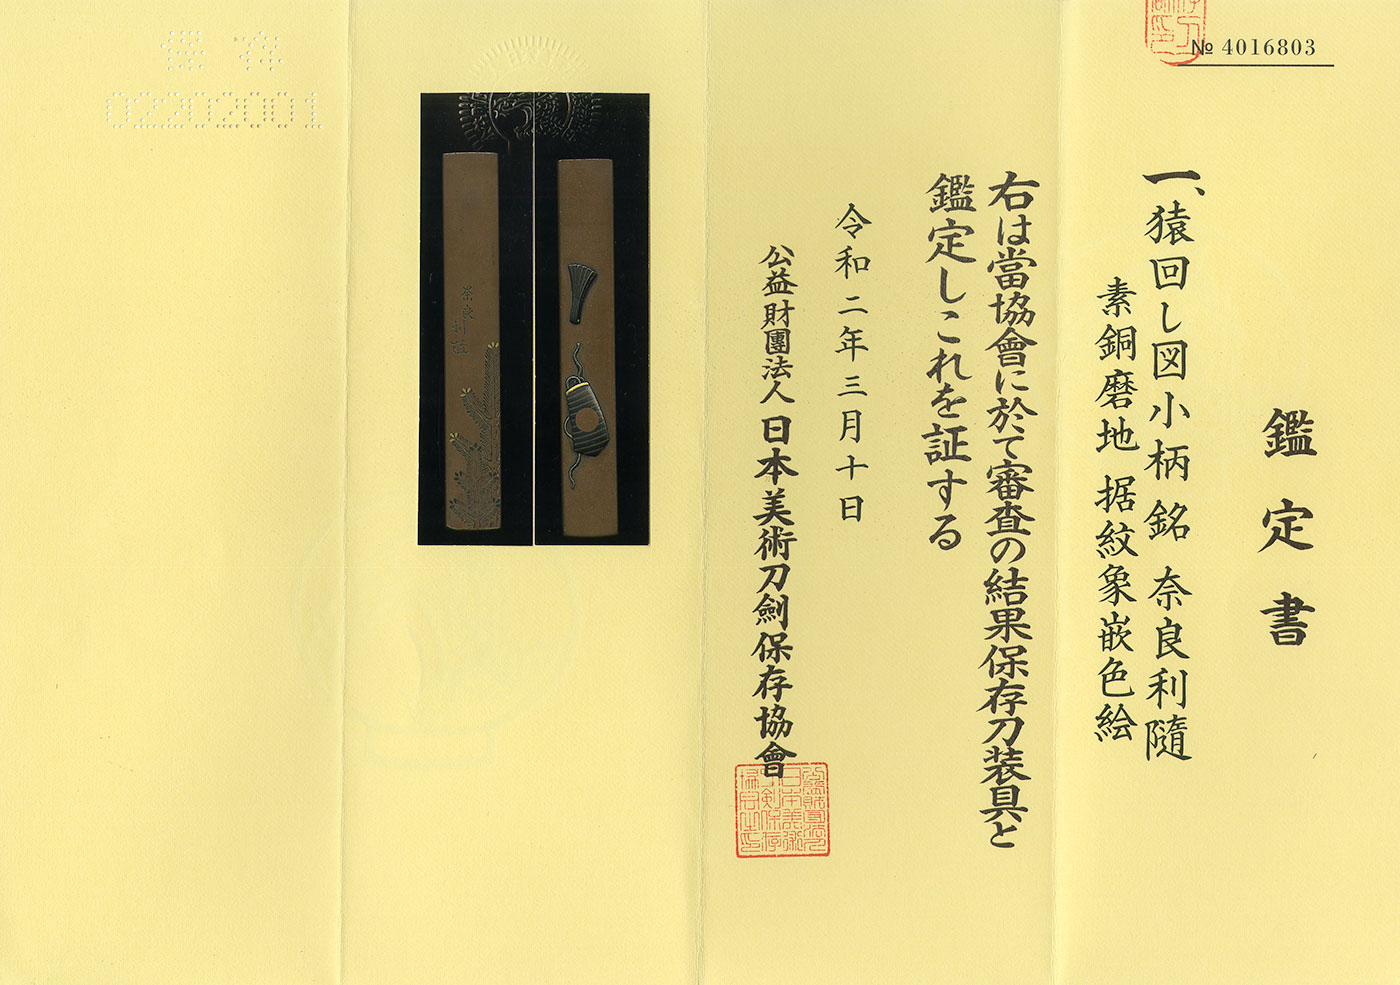 № 4016803
鑑定書
一、猿回し図小柄 銘 奈良利隨
素銅磨地 据紋象嵌色絵
右は當協會に於て審査の結果保存刀装具と
鑑定しこれを証する
令和二年三月十日
公益財團法人 日本美術刀劍保存協會
奈良
保存
02202001